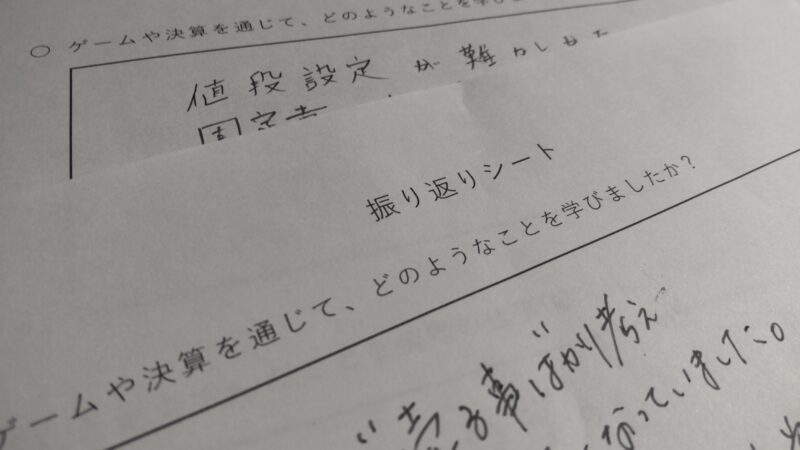 ○ ゲームや決算を通じて、どのようなことを学び
値段設定が難かしかた
固定
振り返りシート
ゲームや決算を通じて、どのようなことを学びましたか？
売る事ばかり考え
なっていました。